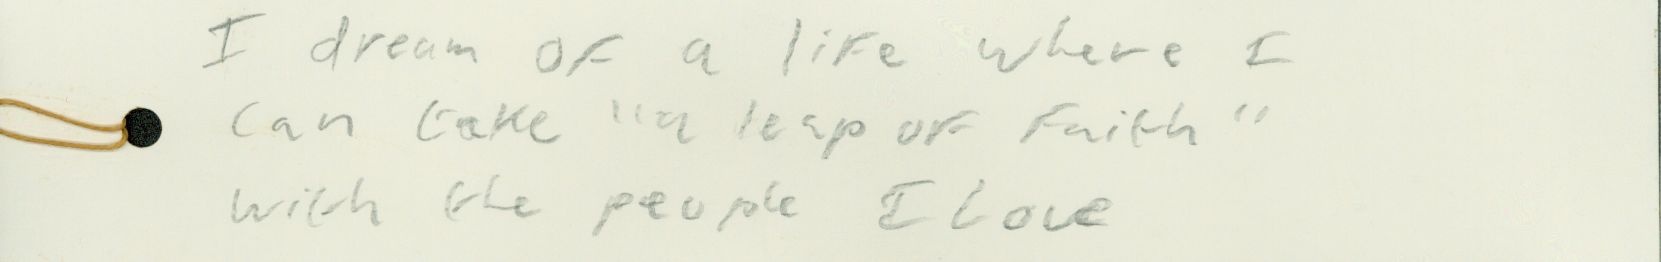 I dream of a life where I
can take "a leap of faith"
with the people I love